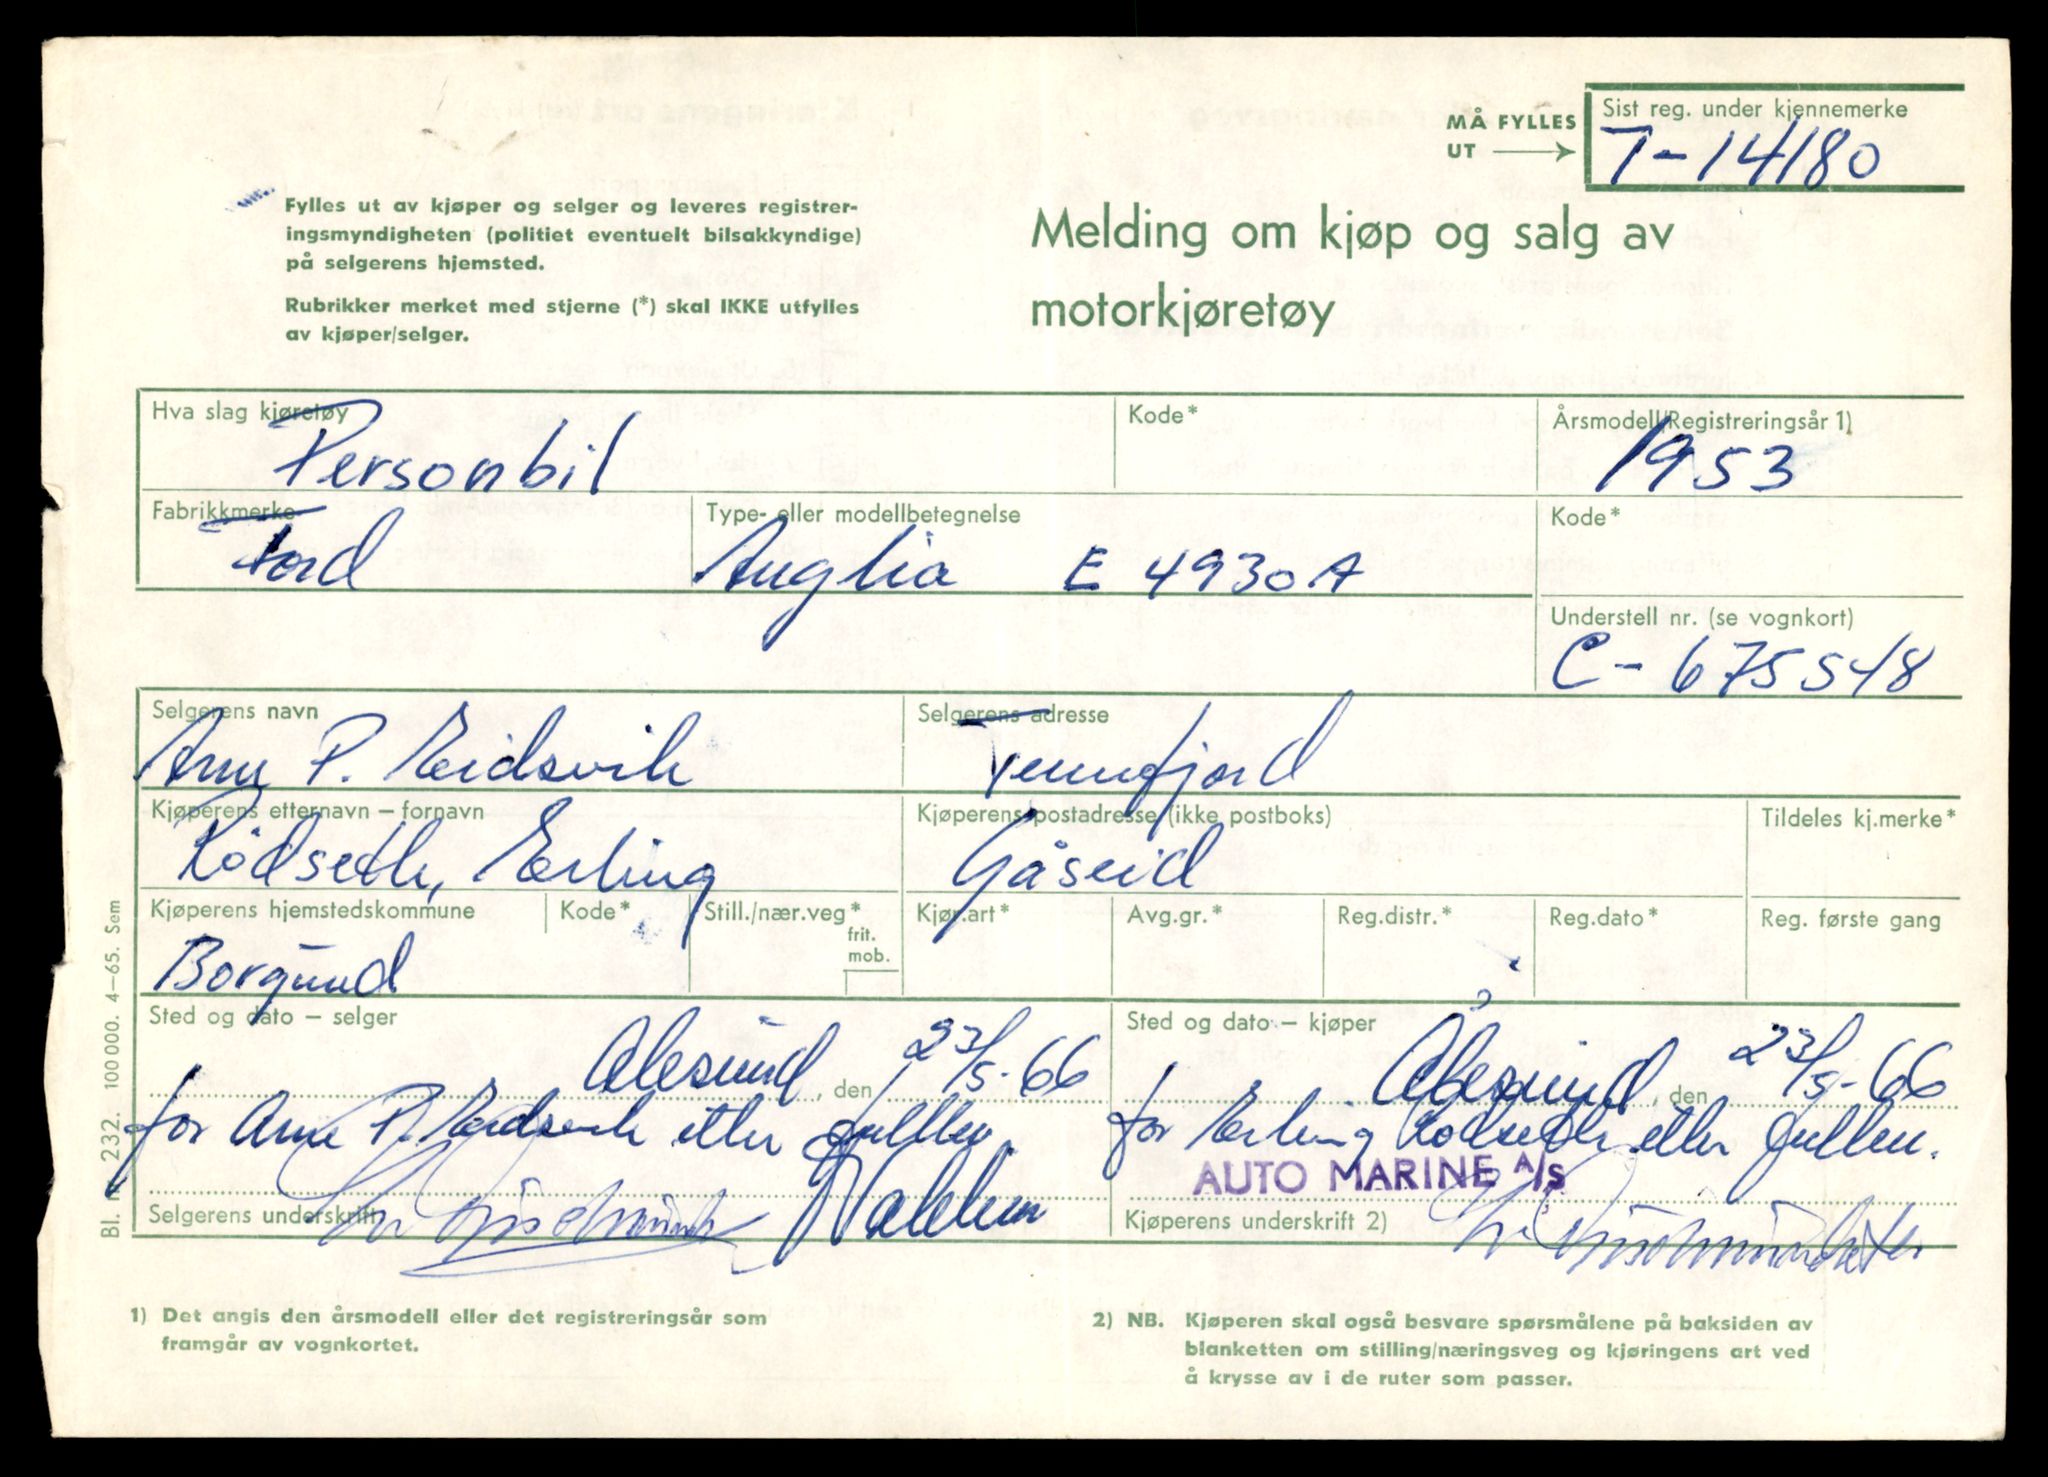 MÅ FYLLES UT
Sist reg. under kjennemerke
T-14180
Fylles ut av kjøper og selger og leveres registrer-
ingsmyndigheten (politiet eventuelt bilsakkyndige)
på selgerens hjemsted.
Rubrikker merket med stjerne (*) skal IKKE utfylles
av kjøper/selger.
Melding om kjøp og salg av
motorkjøretøy
Hva slag kjøretøy Kode* Årsmodell/Registreringsår 1)
Personbil 1953
Fabrikkmerke Type- eller modellbetegnelse Kode*
Ford Anglia E 4930A
Understell nr. (se vognkort)
C-675548
Selgerens navn Selgerens adresse
Arne P. Eidsvik Tennfjord
Kjøperens etternavn – fornavn Kjøperens postadresse (ikke postboks) Tildeles kj.merke*
Rödseth, Erling Gåseid
Kjøperens hjemstedskommune Kode* Still./nær.veg* Kjør.art* Avg.gr.* Reg.distr.* Reg.dato* Reg. første gang
frit.
mob.
Borgund
Sted og dato – selger Sted og dato – kjøper
Ålesund, den 23/5-66 Ålesund, den 23/5-66
for Arne P. Eidsvik etter fullm. for Erling Rödseth etter fullm.
AUTO MARINE A/S
Selgerens underskrift Kjøperens underskrift 2)
1) Det angis den årsmodell eller det registreringsår som
framgår av vognkortet.
2) NB. Kjøperen skal også besvare spørsmålene på baksiden av
blanketten om stilling/næringsveg og kjøringens art ved
å krysse av i de ruter som passer.
Bl. nr. 232. 100 000. 4–65. Sem